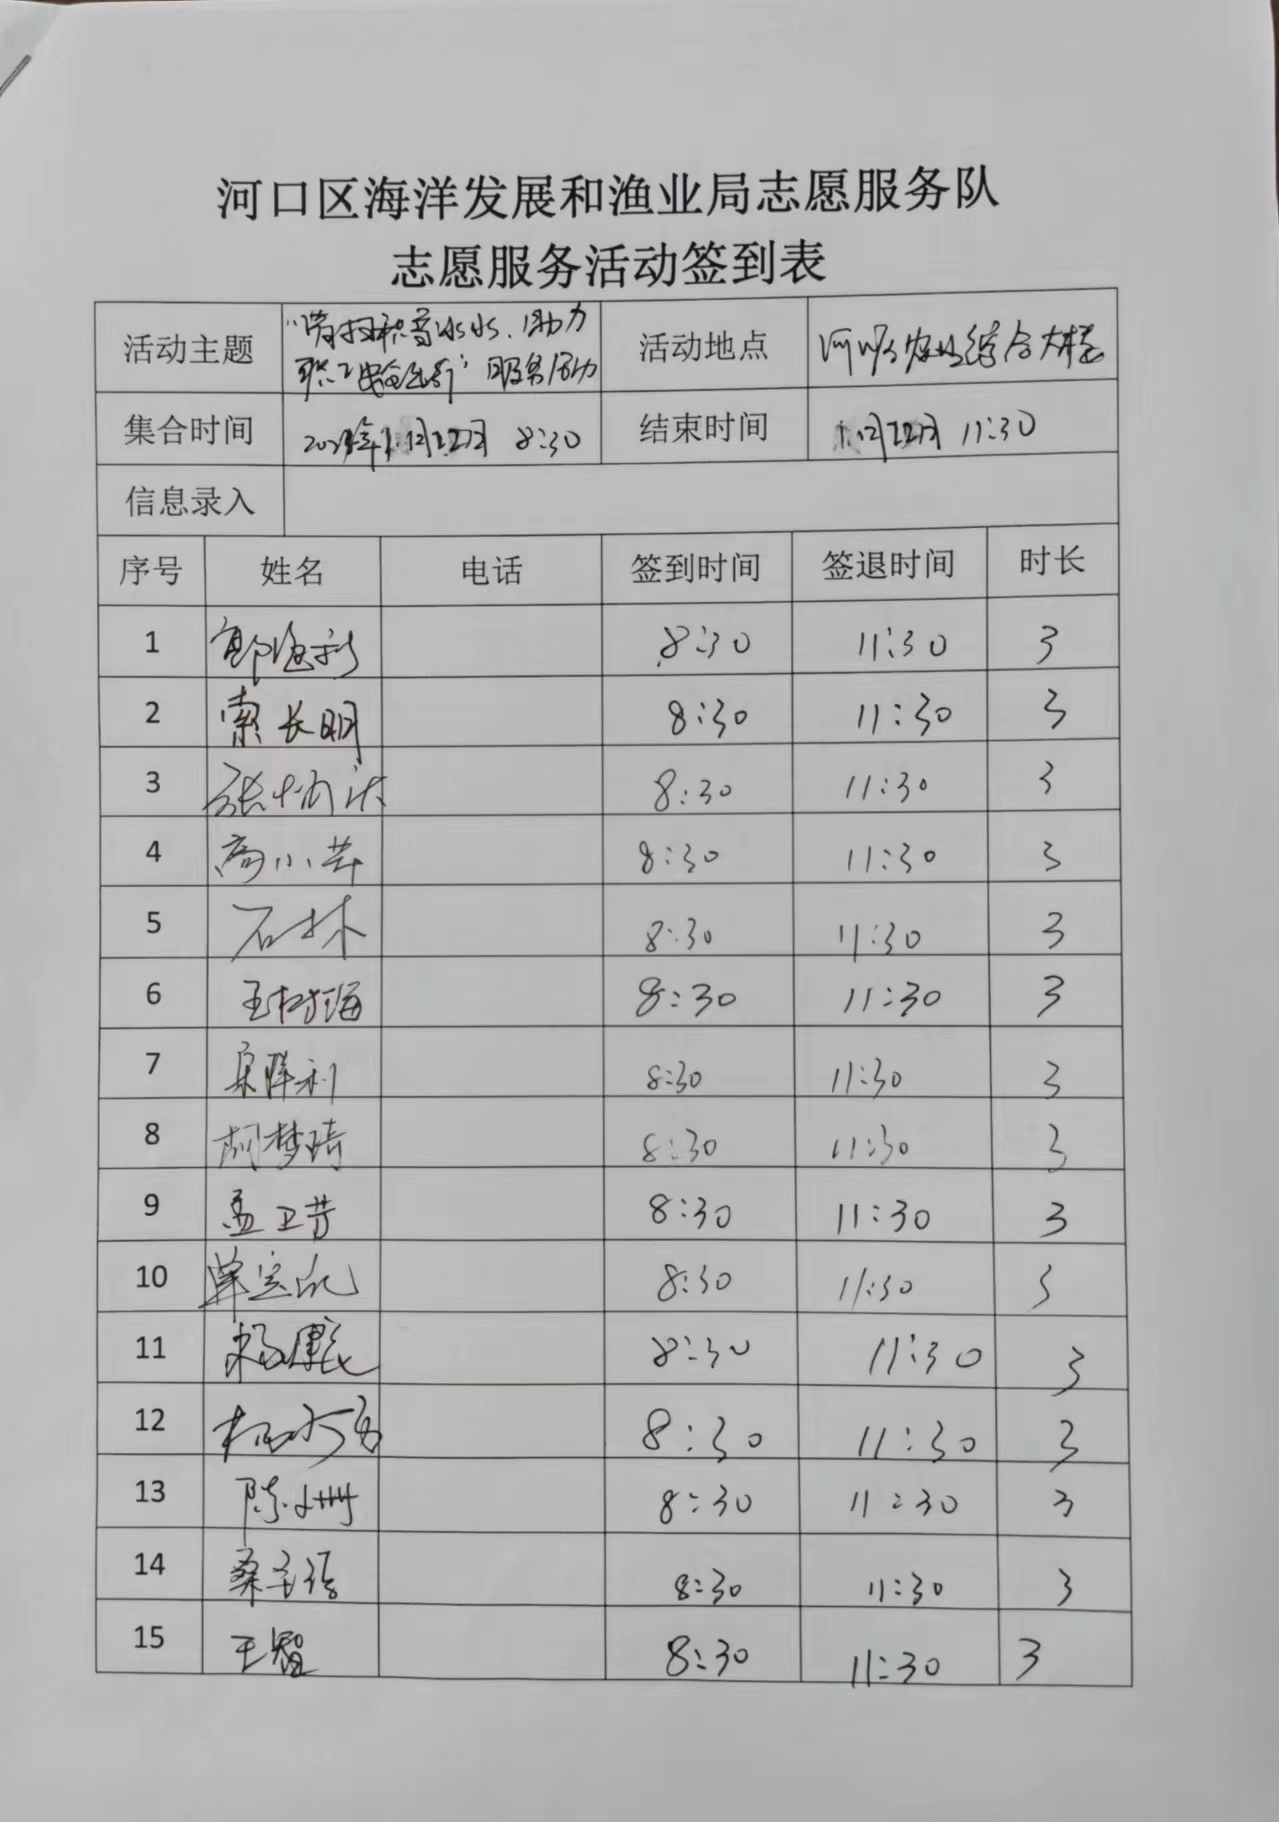 河口区海洋发展和渔业局志愿服务队
志愿服务活动签到表
活动主题 "清扫积雪冰水、助力 活动地点 河口区农业综合大楼
职工安全出行"服务活动
集合时间 月22日 8:30 结束时间 月22日 11:30
信息录入
序号 姓名 电话 签到时间 签退时间 时长
1 8:30 11:30 3
2 索长明 8:30 11:30 3
3 张 8:30 11:30 3
4 高小芹 8:30 11:30 3
5 石林 8:30 11:30 3
6 王树海 8:30 11:30 3
7 8:30 11:30 3
8 柯梦琦 8:30 11:30 3
9 孟卫芳 8:30 11:30 3
10 单宝 8:30 11:30 3
11 杨 8:30 11:30 3
12 杨 8:30 11:30 3
13 陈 8:30 11:30 3
14 桑 8:30 11:30 3
15 王智 8:30 11:30 3